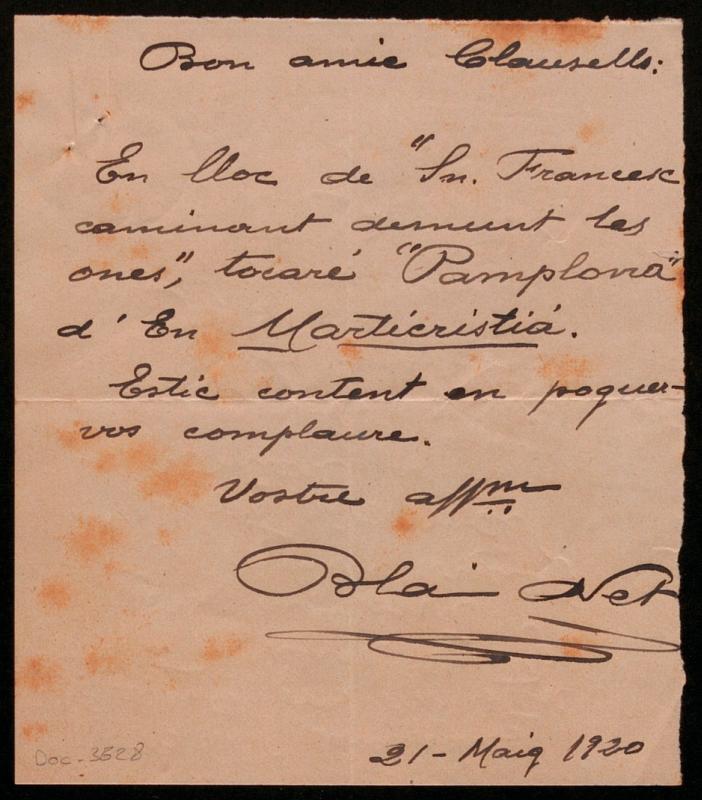 Bon amic Clausells:
En lloc de "Sn. Francesc
caminant demunt les
ones", tocaré "Pamplona"
d' En Martícristiá.
Estic content en poguer-
vos complaure.
Vostre affm
Blai Net
21 - Maig 1920
Doc-3528